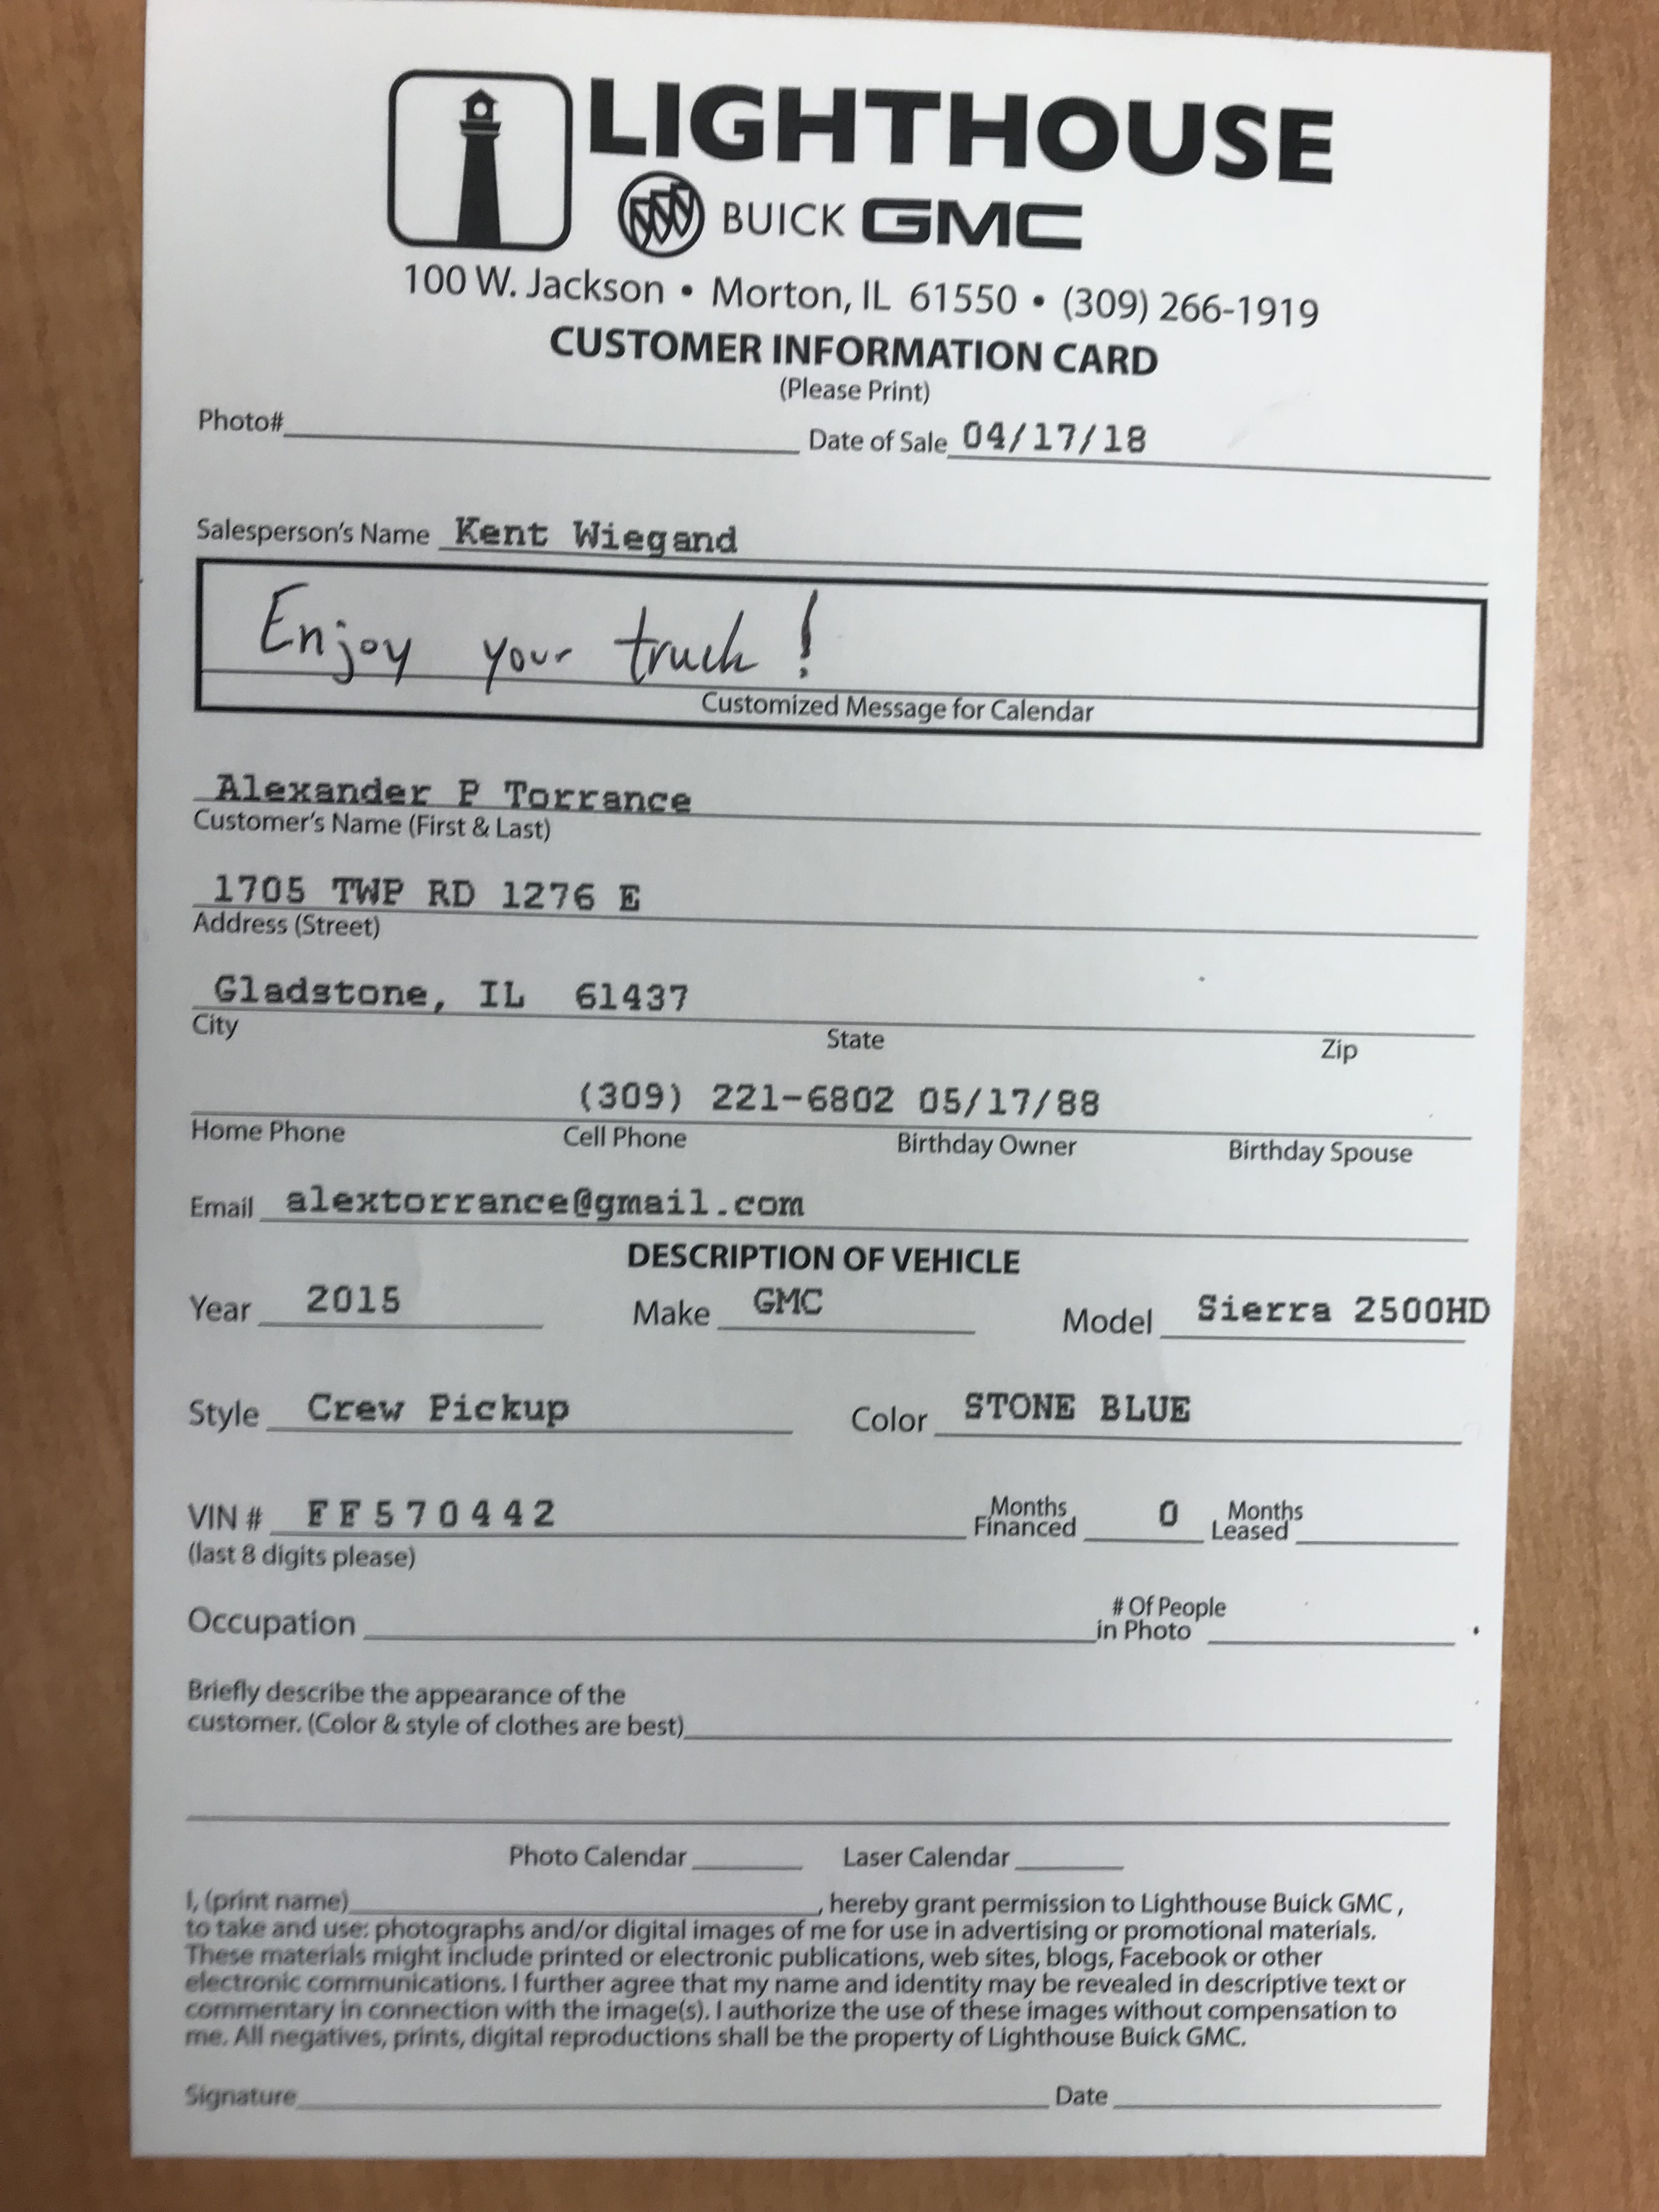 LIGHTHOUSE
BUICK GMC
100 W. Jackson • Morton, IL 61550 • (309) 266-1919
CUSTOMER INFORMATION CARD
(Please Print)
Photo# Date of Sale 04/17/18
Salesperson's Name Kent Wiegand
Enjoy your truck!
Customized Message for Calendar
Alexander P Torrance
Customer's Name (First & Last)
1705 TWP RD 1276 E
Address (Street)
Gladstone, IL 61437
City State Zip
(309) 221-6802 05/17/88
Home Phone Cell Phone Birthday Owner Birthday Spouse
Email alextorrance@gmail.com
DESCRIPTION OF VEHICLE
Year 2015 Make GMC Model Sierra 2500HD
Style Crew Pickup Color STONE BLUE
VIN # FF570442 Months Financed 0 Months Leased
(last 8 digits please)
Occupation # Of People in Photo
Briefly describe the appearance of the
customer. (Color & style of clothes are best)
Photo Calendar Laser Calendar
I, (print name) , hereby grant permission to Lighthouse Buick GMC,
to take and use: photographs and/or digital images of me for use in advertising or promotional materials.
These materials might include printed or electronic publications, web sites, blogs, Facebook or other
electronic communications. I further agree that my name and identity may be revealed in descriptive text or
commentary in connection with the image(s). I authorize the use of these images without compensation to
me. All negatives, prints, digital reproductions shall be the property of Lighthouse Buick GMC.
Signature Date